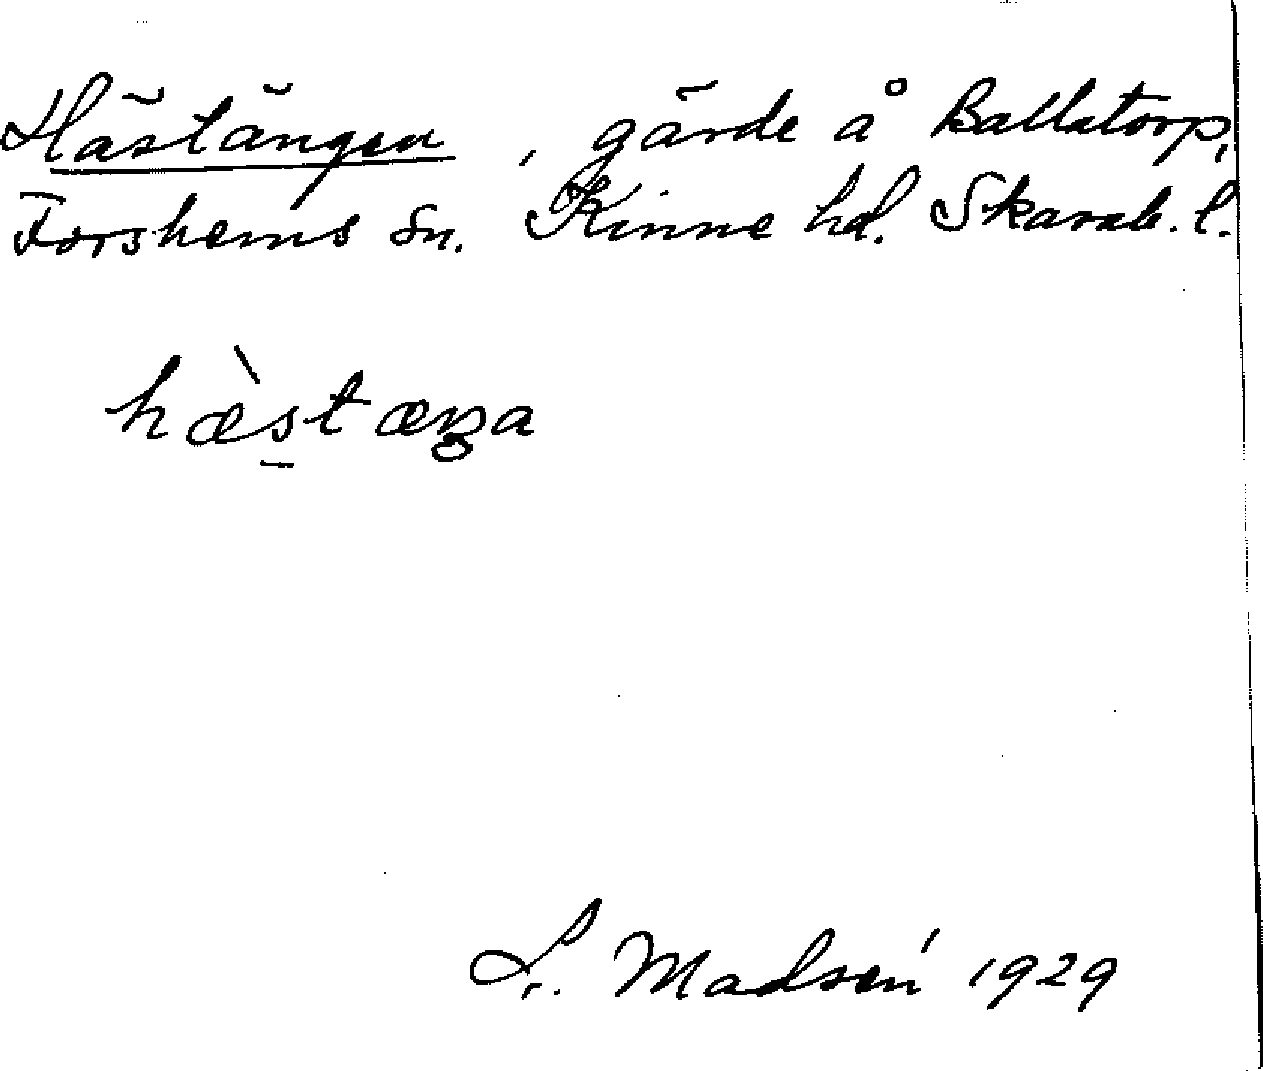 Hästängen, gärde å Ballatorp,
Forshems sn. Kinne hd. Skarab. l.
hæ̀stæŋa
L. Madsén 1929